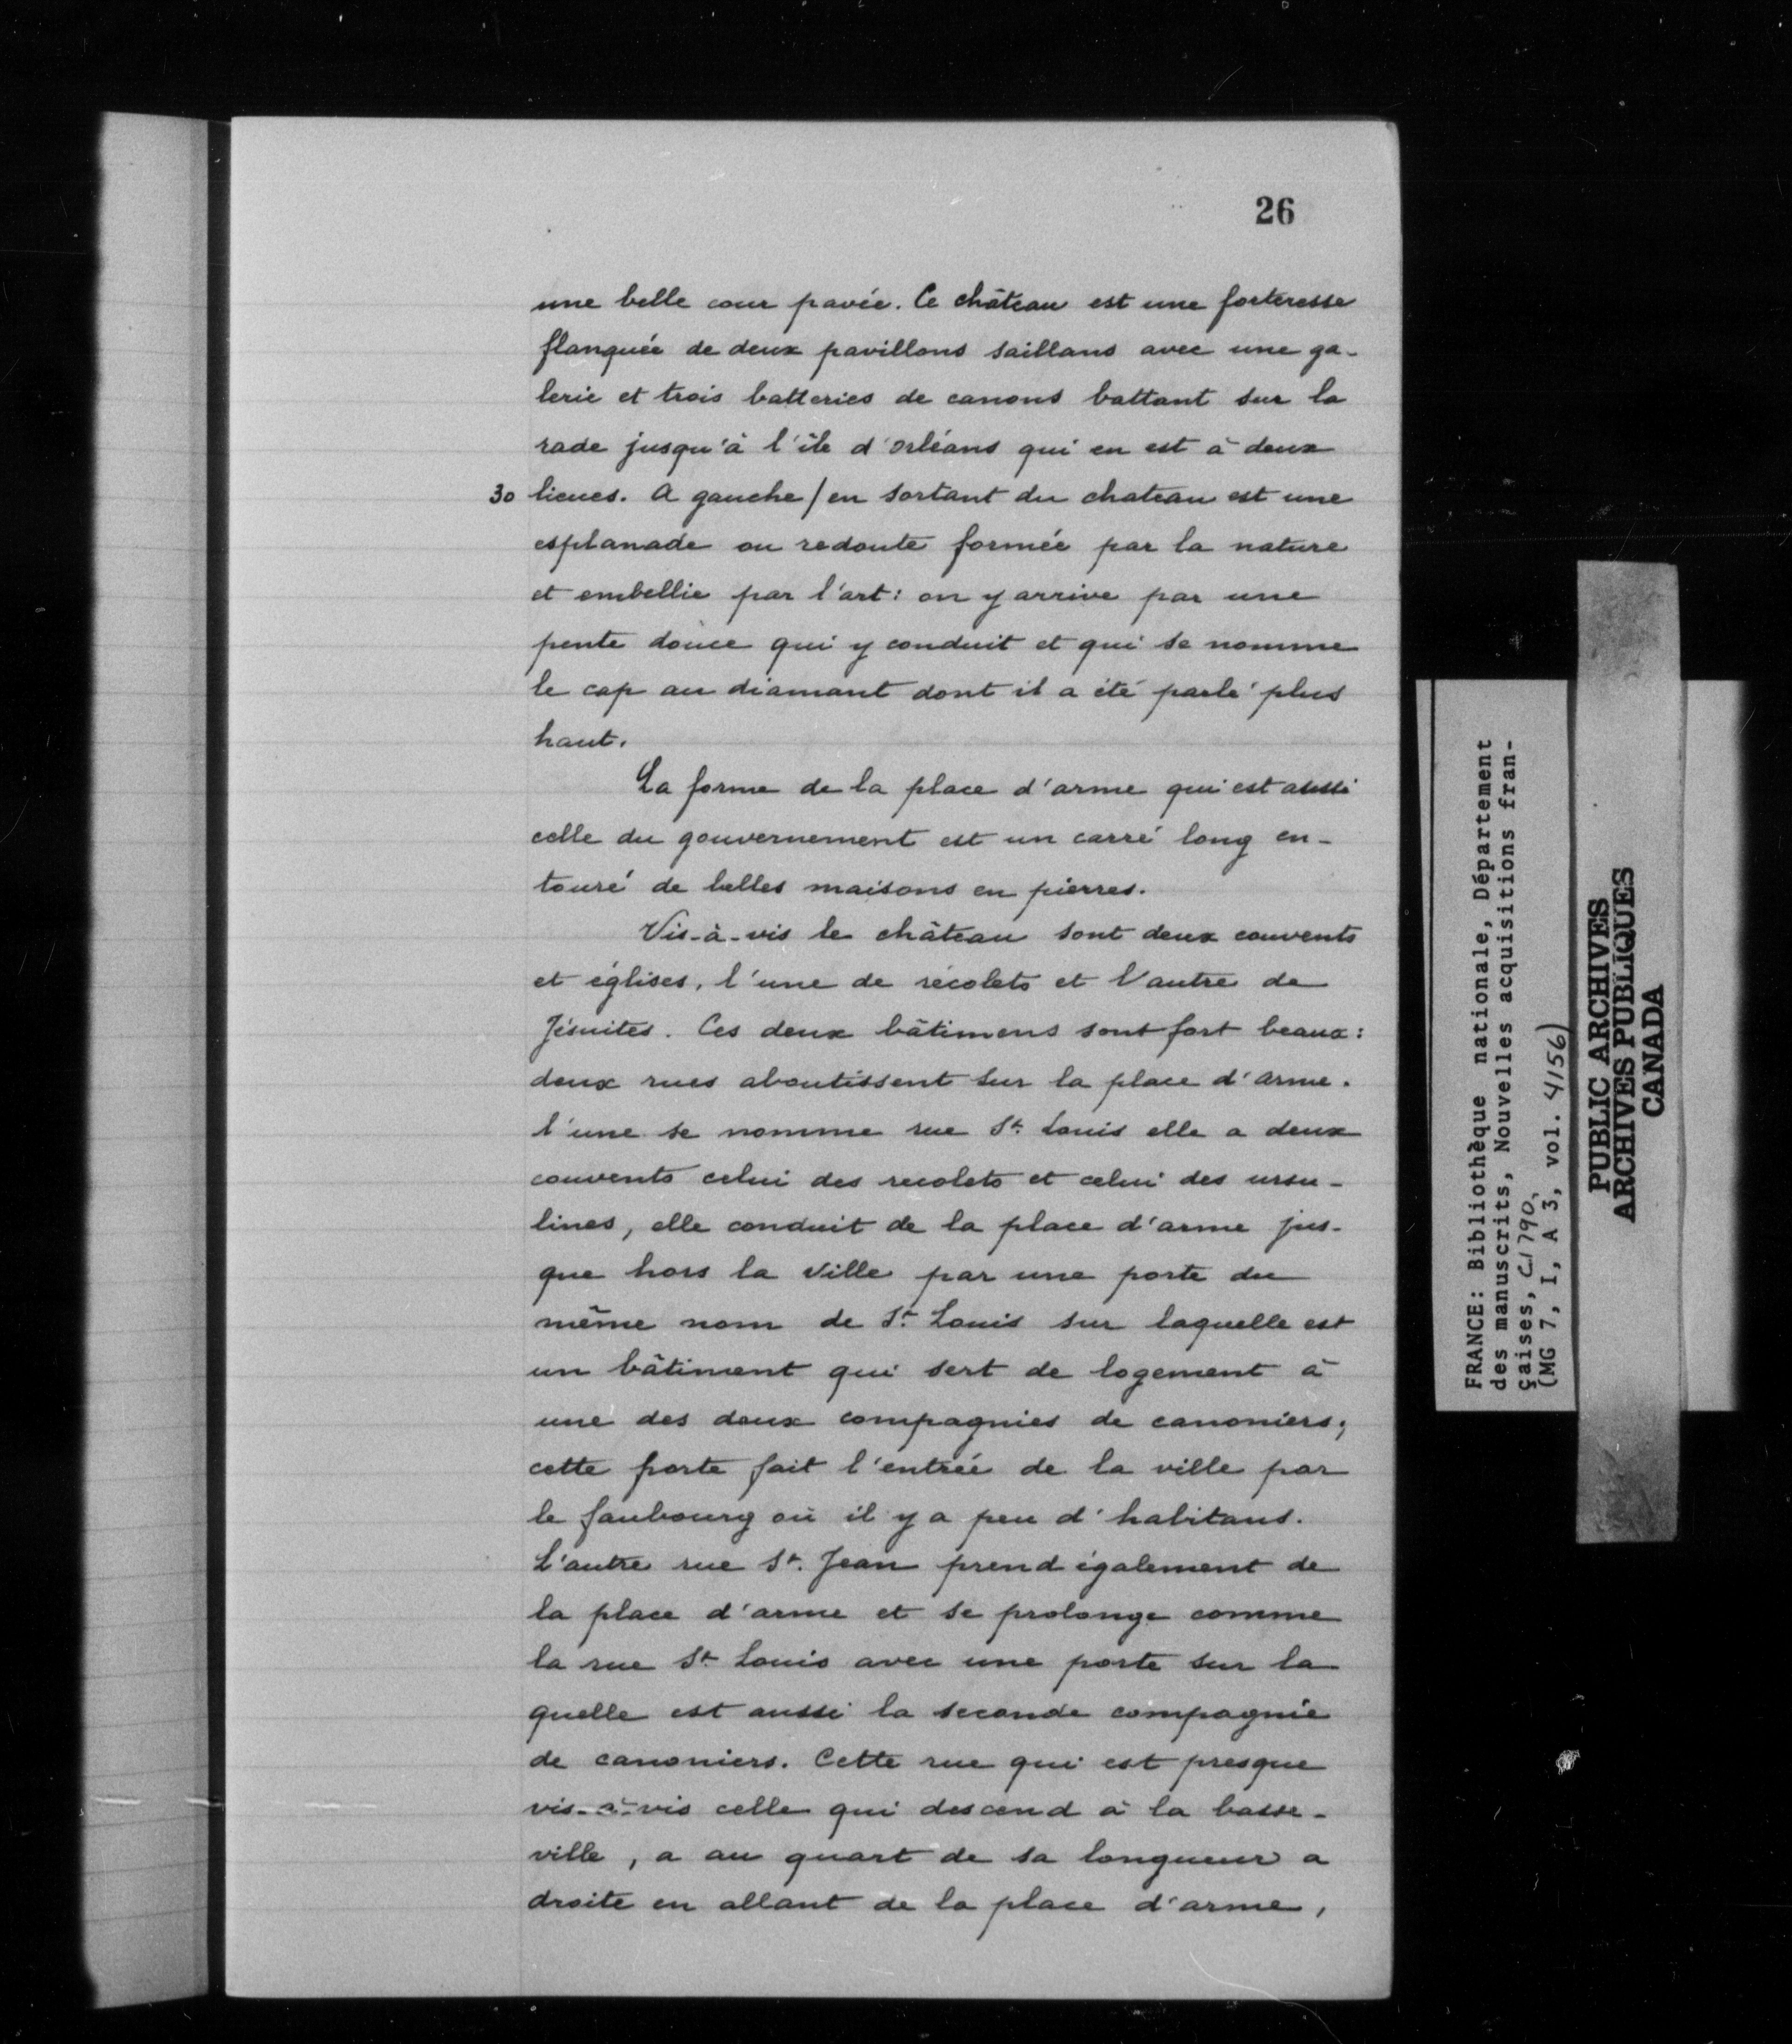 26
une belle cour pavée. Ce château est une forteresse
flanquée de deux pavillons saillans avec une ga-
lerie et trois batteries de canons battant sur la
rade jusqu'à l'île d'orléans qui en est à deux
30 lieues. A gauche / en sortant du chateau est une
esplanade ou redoute formée par la nature
et embellie par l'art : on y arrive par une
pente douce qui y conduit et qui se nomme
le cap au diamant dont il a été parlé plus
haut.
La forme de la place d'arme qui est aussi
celle du gouvernement est un carré long en-
touré de belles maisons en pierres.
Vis-à-vis le château sont deux couvents
et églises, l'une de récolets et l'autre de
Jésuites. Ces deux bâtimens sont fort beaux :
deux rues aboutissent sur la place d'arme.
l'une se nomme rue St. Louis elle a deux
couvents celui des recolets et celui des ursu-
lines, elle conduit de la place d'arme jus-
que hors la ville par une porte du
même nom de St. Louis sur laquelle est
un bâtiment qui sert de logement à
une des deux compagnies de canoniers;
cette porte fait l'entrée de la ville par
le faubourg où il y a peu d'habitans.
L'autre rue St. Jean prend également de
la place d'arme et se prolonge comme
la rue St. Louis avec une porte sur la
quelle est aussi la seconde compagnie
de canoniers. Cette rue qui est presque
vis-à-vis celle qui descend à la basse-
ville, a au quart de sa longueur a
droite en allant de la place d'arme,
FRANCE: Bibliothèque nationale, Département
des manuscrits, Nouvelles acquisitions fran-
çaises,
(MG 7, I, A 3, vol. 4156)
PUBLIC ARCHIVES
ARCHIVES PUBLIQUES
CANADA